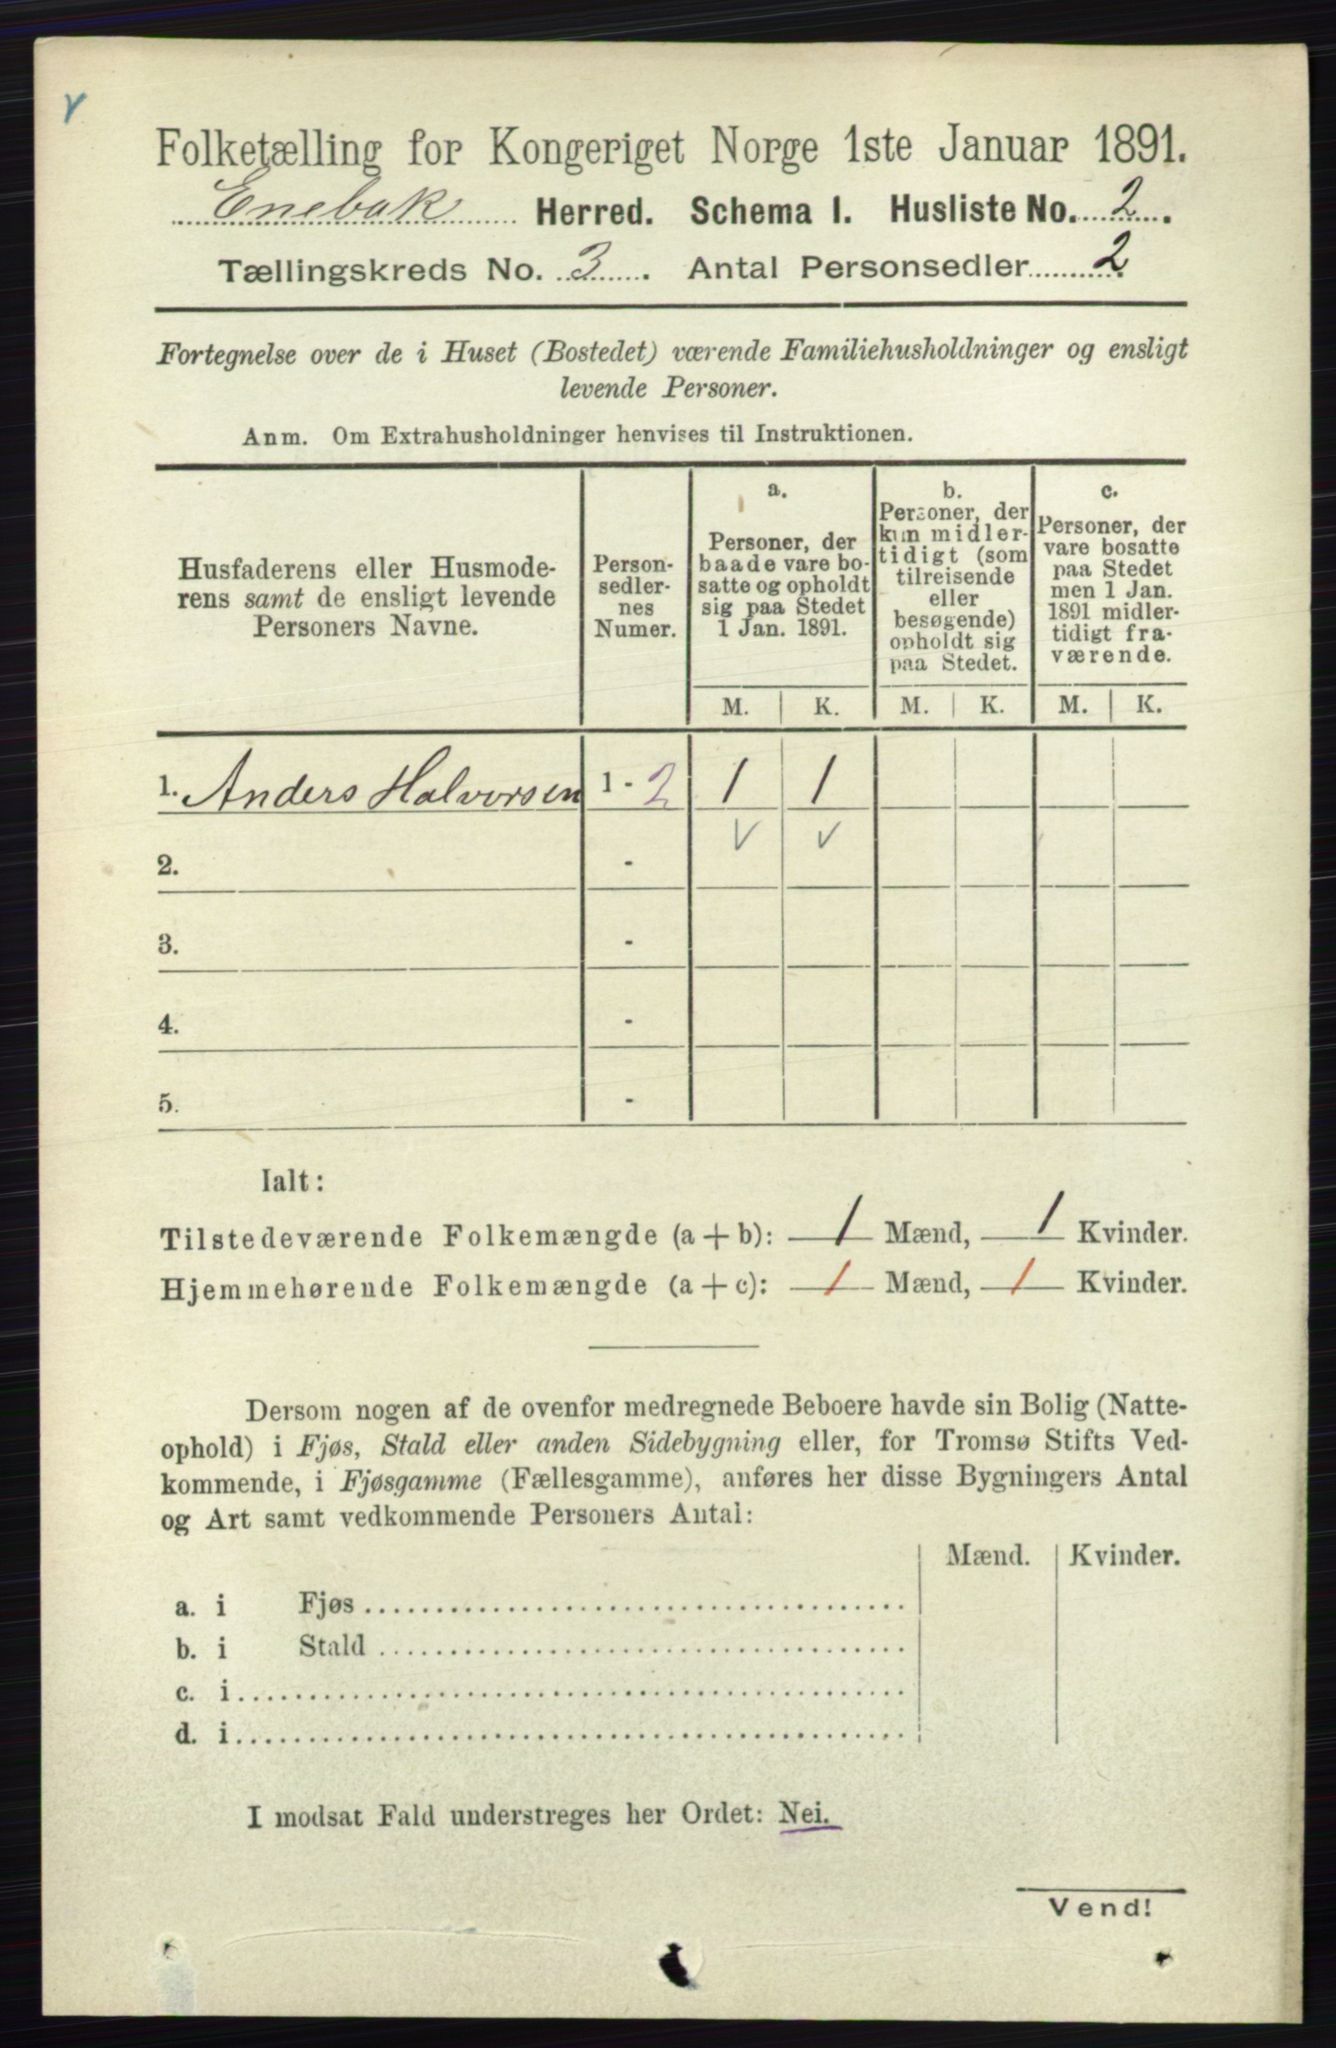 Folketælling for Kongeriget Norge 1ste Januar 1891.
Enebak Herred. Schema I. Husliste No. 2.
Tællingskreds No. 3. Antal Personsedler 2.
Fortegnelse over de i Huset (Bostedet) værende Familiehusholdninger og ensligt
levende Personer.
Anm. Om Extrahusholdninger henvises til Instruktionen.
Husfaderens eller Husmode-
rens samt de ensligt levende
Personers Navne.
Person-
sedler-
nes
Numer.
a.
Personer, der
baade vare bo-
satte og opholdt
sig paa Stedet
1 Jan. 1891.
b.
Personer, der
kun midler-
tidigt (som
tilreisende
eller
besøgende)
opholdt sig
paa Stedet.
c.
Personer, der
vare bosatte
paa Stedet
men 1 Jan.
1891 midler-
tidigt fra-
værende.
M. K. M. K. M. K.
1. Anders Halvorsen 1 - 2 1 1
2. - v v
3. -
4. -
5. -
Ialt:
Tilstedeværende Folkemængde (a + b): 1 Mænd, 1 Kvinder.
Hjemmehørende Folkemængde (a + c): 1 Mænd, 1 Kvinder.
Dersom nogen af de ovenfor medregnede Beboere havde sin Bolig (Natte-
ophold) i Fjøs, Stald eller anden Sidebygning eller, for Tromsø Stifts Ved-
kommende, i Fjøsgamme (Fællesgamme), anføres her disse Bygningers Antal
og Art samt vedkommende Personers Antal:
Mænd. Kvinder.
a. i Fjøs
b. i Stald
c. i
d. i
I modsat Fald understreges her Ordet: Nei.
Vend!